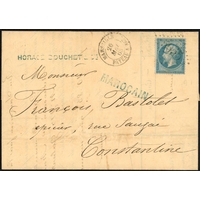 HORACE BOUCHET
MAROCAIN
Monsieur
François Bastolet
épicier, rue Sauzai
Constantine